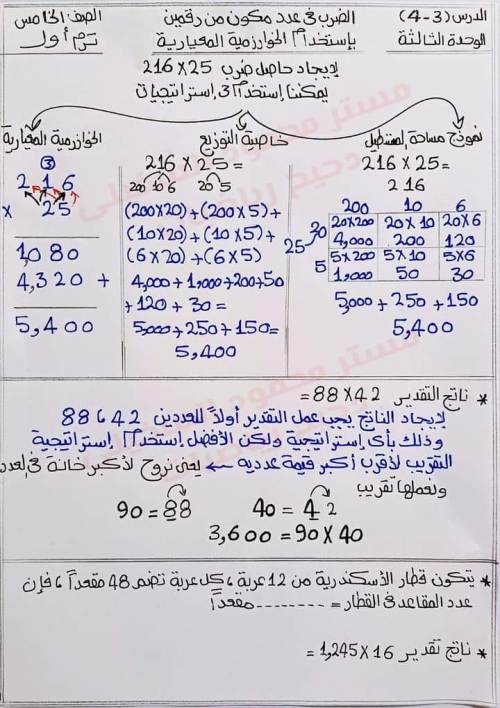 الدرس (3-4)
الوحدة الثالثة
الضرب فى عدد مكون من رقمين
بإستخدام الخوارزمية المعيارية
الصف الخامس
ترم أول
لإيجاد حاصل ضرب 25 × 216
يمكننا إستخدام 3 إستراتيجيات
نموذج مساحة المستطيل
216 × 25 =
216
200 10 6
20 20×200 20×10 20×6
25
4,000 200 120
5 5×200 5×10 5×6
1,000 50 30
5,000 + 250 + 150
5,400
خاصية التوزيع
216 × 25 =
200 10 6 20 5
(200×20) + (200×5) +
(10×20) + (10×5) +
(6×20) + (6×5)
4,000 + 1,000 + 200 + 50
+ 120 + 30 =
5,000 + 250 + 150 =
5,400
الخوارزمية المعيارية
③
216
× 25
1,080
4,320 +
5,400
* ناتج التقدير 42 × 88 =
لإيجاد الناتج يجب عمل التقدير أولاً للعددين 42 ، 88
وذلك بأى إستراتيجية ولكن الأفضل إستخدام إستراتيجية
التقريب لأقرب أكبر قيمة عددية ← يعنى نروح لأكبر خانة فى العدد
ونعملها تقريب
42 = 40
88 = 90
40 × 90 = 3,600
* يتكون قطار الأسكندرية من 12 عربة ، كل عربة تضم 48 مقعداً ، فإن
عدد المقاعد فى القطار = -------- مقعداً
* ناتج تقدير 16 × 1,245 =